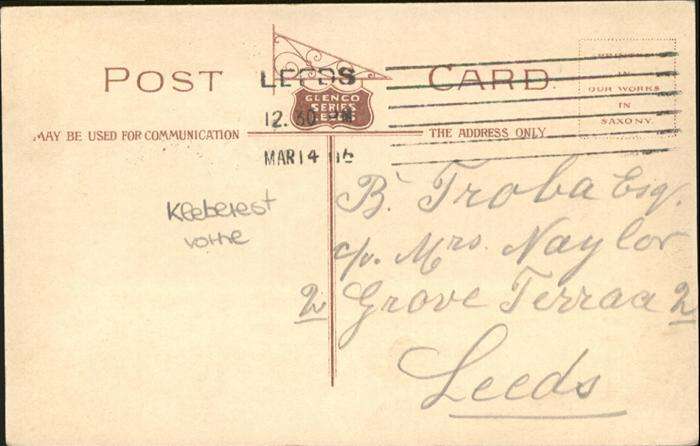 POST CARD
LEEDS
GLENCO
SERIES
LEEDS
12.30 PM
MAR 14
PRINTED
IN
OUR WORKS
IN
SAXONY.
MAY BE USED FOR COMMUNICATION
THE ADDRESS ONLY
Kleberest
vorne
B. Troba Esq.
c/o. Mrs. Naylor
2 Grove Terrace 2
Leeds